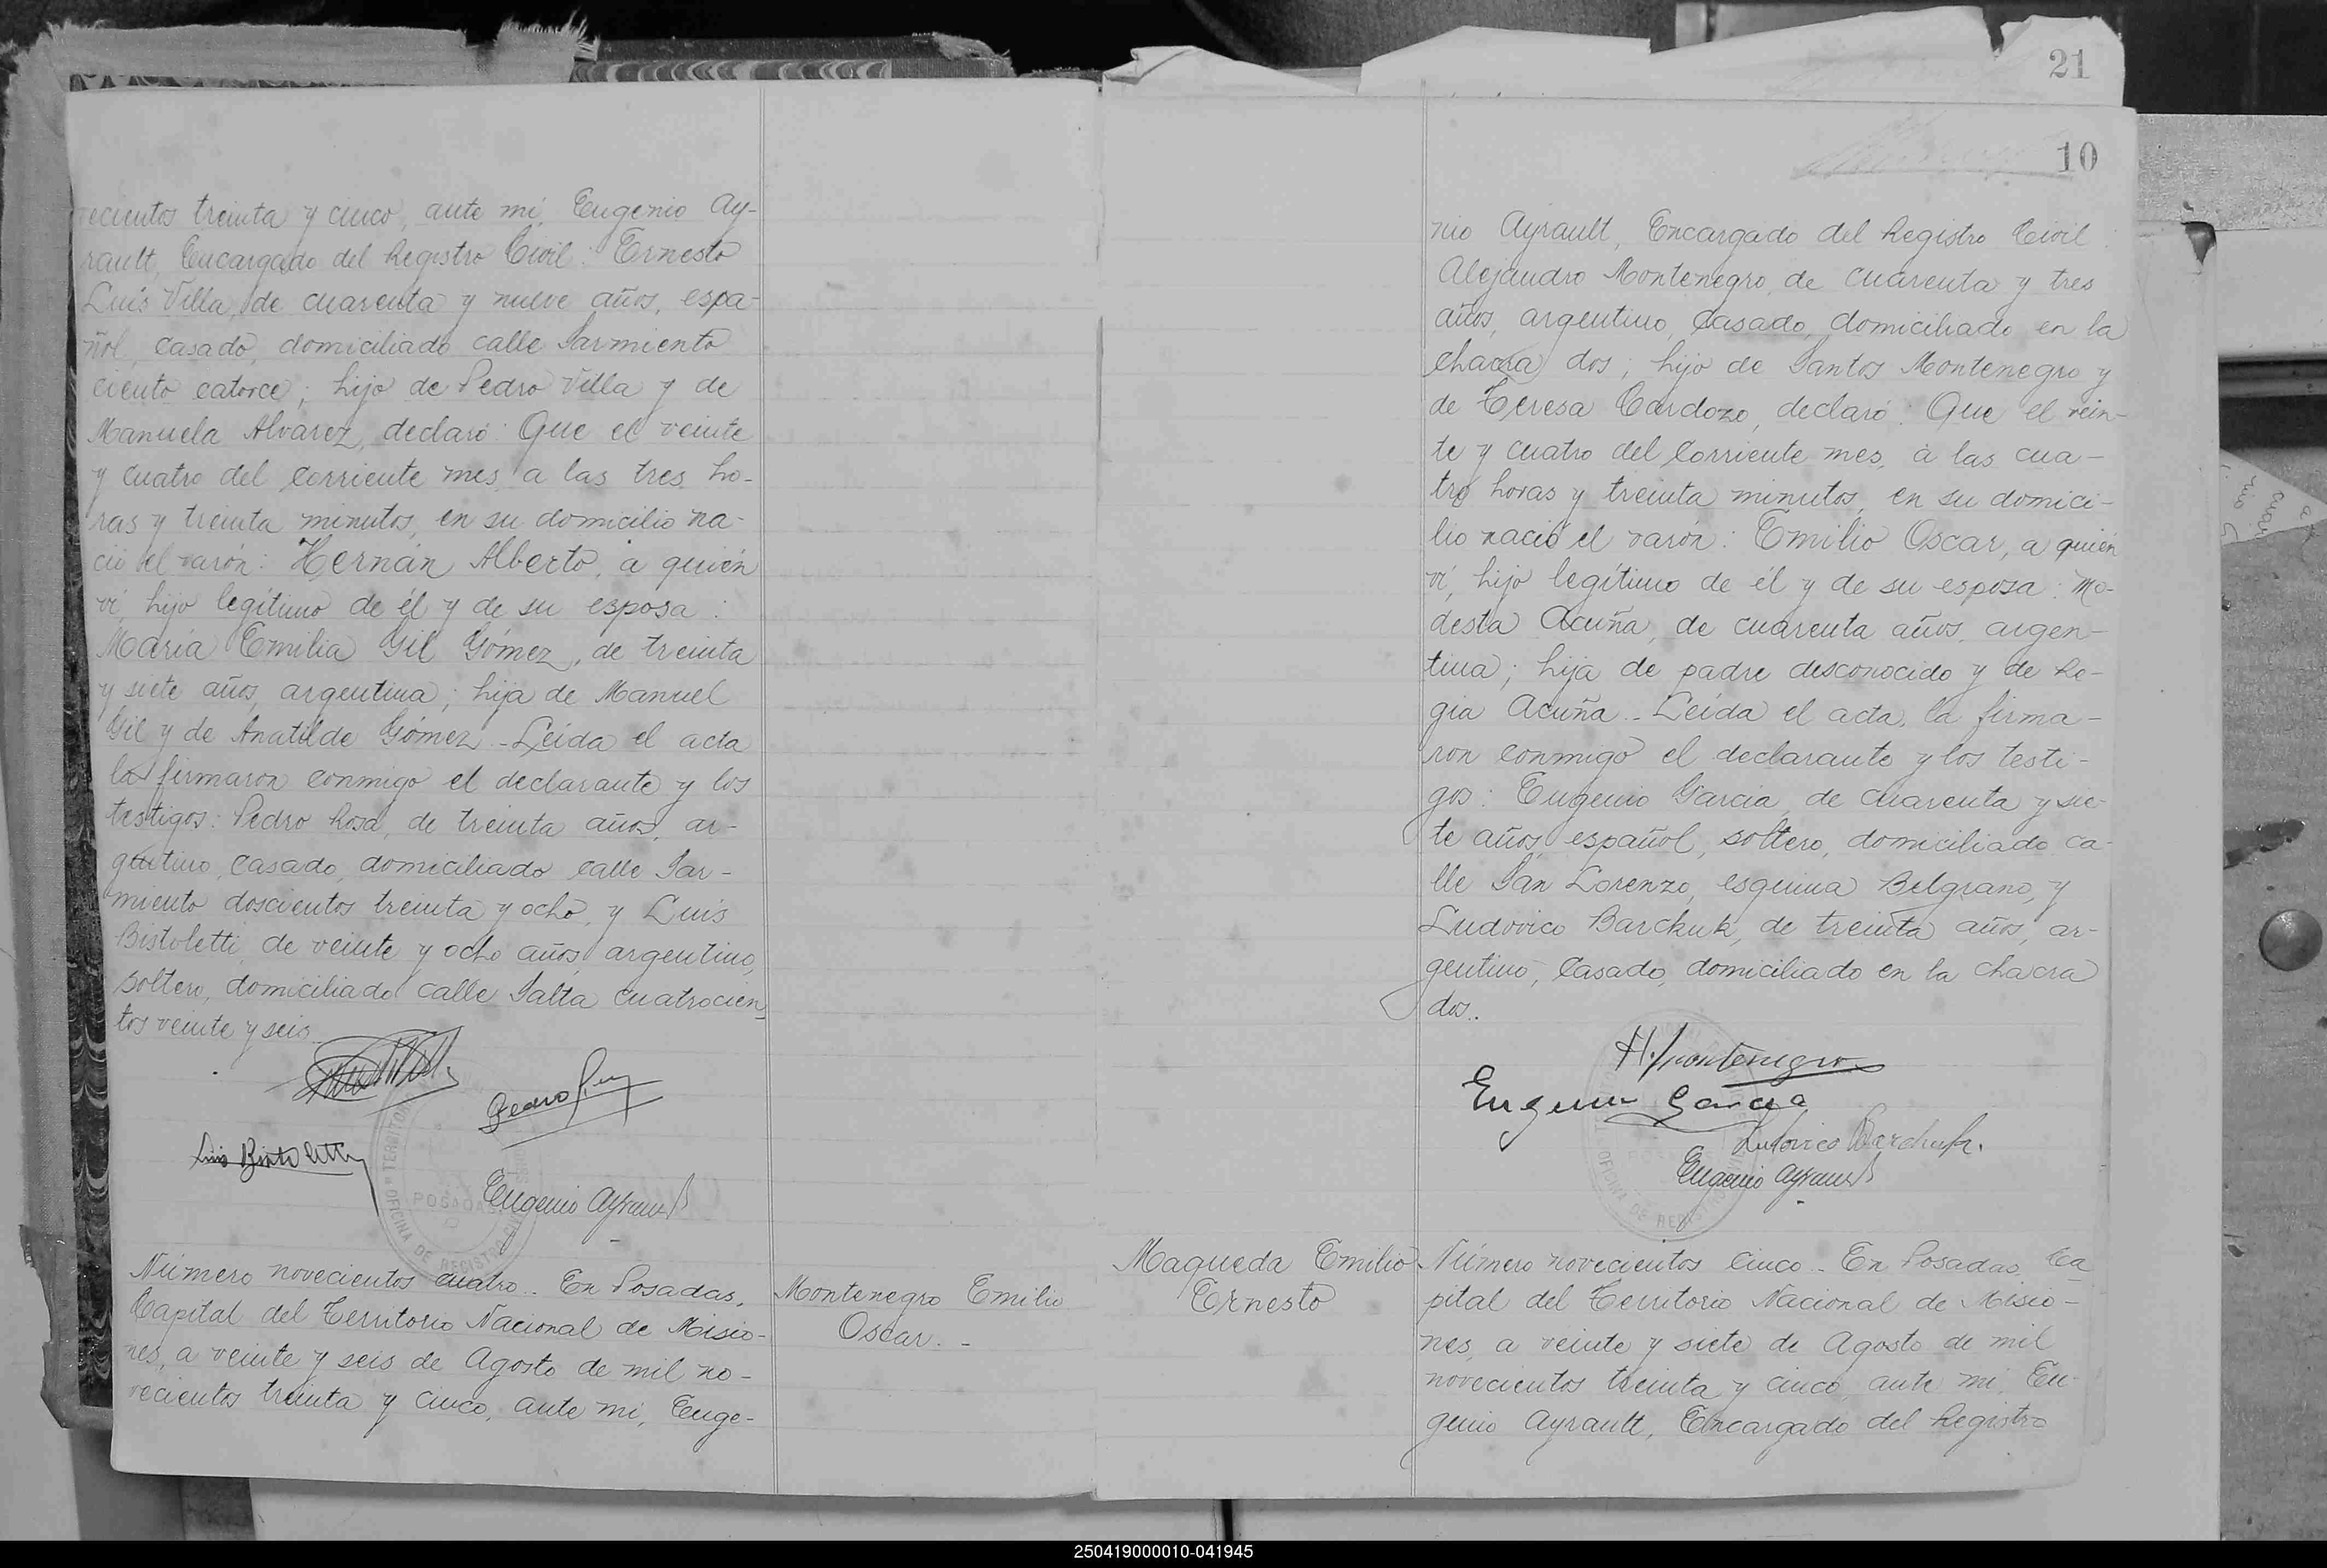 ecientos treinta y cinco, ante mí, Eugenio Ay-
rault, Encargado del Registro Civil: Ernesto
Luis Villa, de cuarenta y nueve años, espa-
ñol, casado, domiciliado calle Sarmiento
ciento catorce; hijo de Pedro Villa y de
Manuela Alvarez, declaró: Que el veinte
y cuatro del corriente mes a las tres ho-
ras y treinta minutos, en su domicilio na-
ció el varón: Hernán Alberto, a quién
ví, hijo legítimo de él y de su esposa:
María Emilia Gil Gómez, de treinta
y siete años, argentina; hija de Manuel
Gil y de Anatilde Gómez.- Leída el acta
la firmaron conmigo el declarante y los
testigos: Pedro Rosa, de treinta años, ar-
gentino, casado, domiciliado calle Sar-
miento doscientos treinta y ocho, y Luis
Bistoletti, de veinte y ocho años, argentino,
soltero, domiciliado calle Salta cuatrocien
tos veinte y seis
Pedro
Luis Bistoletti
Eugenio Ayrault
POSADAS
OFICINA DE REGISTRO
Número novecientos cuatro.- En Posadas,
Capital del Territorio Nacional de Misio-
nes, a veinte y seis de Agosto de mil no-
vecientos treinta y cinco, ante mi, Euge-
Montenegro Emilio
Oscar.-
21
10
nio Ayrault, Encargado del Registro Civil:
Alejandro Montenegro, de cuarenta y tres
años, argentino, casado, domiciliado en la
chacra dos; hijo de Santos Montenegro y
de Teresa Cardozo, declaró: Que el vein-
te y cuatro del corriente mes, a las cua-
tro horas y treinta minutos, en su domici-
lio nació el varón: Emilio Oscar, a quién
ví, hijo legítimo de él y de su esposa: Mo-
desta Acuña, de cuarenta años, argen-
tina; hija de padre desconocido y de Re-
gia Acuña.- Leída el acta, la firma-
ron conmigo el declarante y los testi-
gos: Eugenio García, de cuarenta y sie-
te años, español, soltero, domiciliado ca-
lle San Lorenzo, esquina Belgrano, y
Ludovico Barchuk, de treinta años, ar-
gentino, casado, domiciliado en la chacra
dos.
A. Montenegro
Eugenio García
Ludovico Barchuk.
Eugenio Ayrault
Maqueda Emilio
Ernesto
Número novecientos cinco.- En Posadas, Ca
pital del Territorio Nacional de Misio-
nes, a veinte y siete de Agosto de mil
novecientos treinta y cinco, ante mi, Eu-
genio Ayrault, Encargado del Registro
250419000010-041945